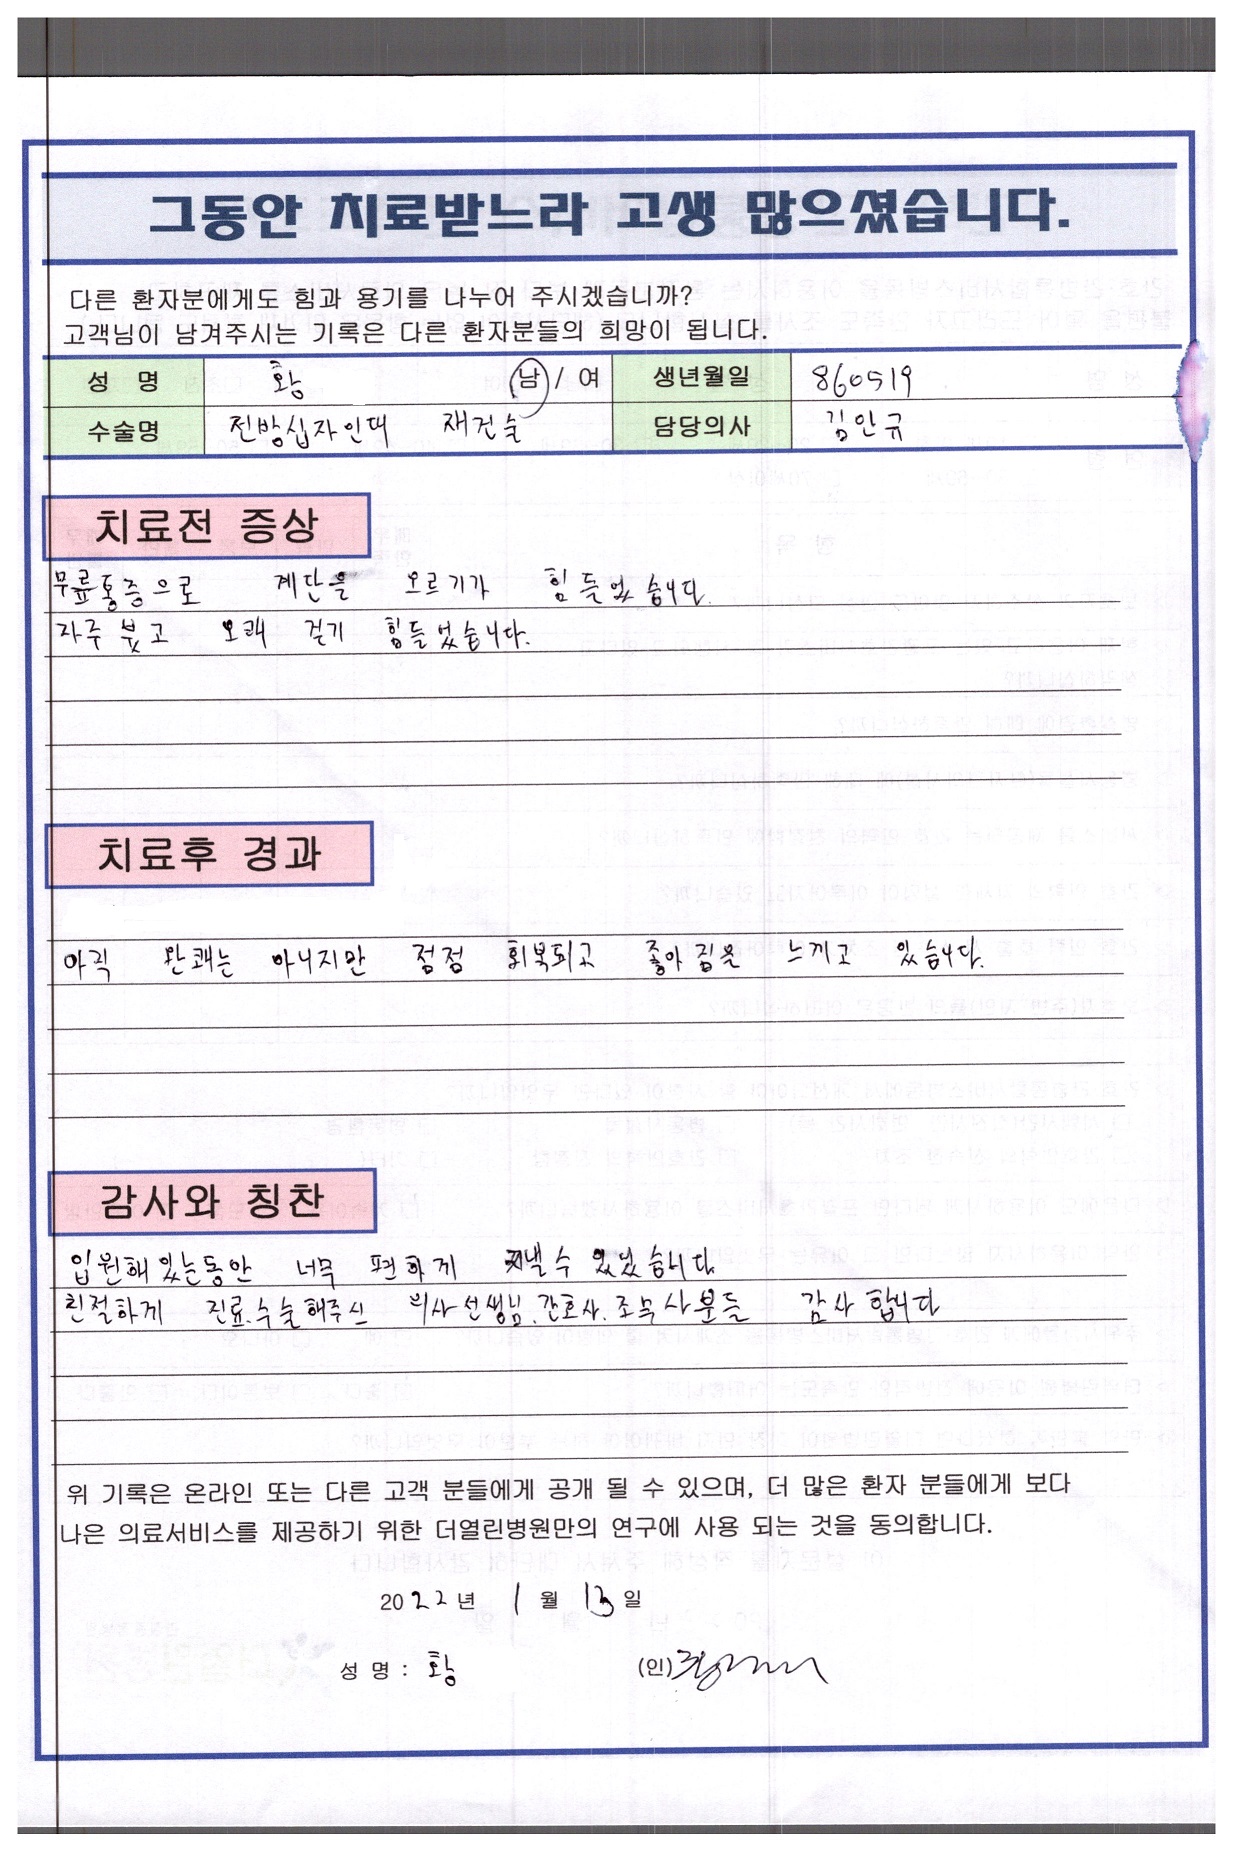 그동안 치료받느라 고생 많으셨습니다.
다른 환자분에게도 힘과 용기를 나누어 주시겠습니까?
고객님이 남겨주시는 기록은 다른 환자분들의 희망이 됩니다.
성 명 황 남 / 여 생년월일 860519
수술명 전방십자인대 재건술 담당의사 김안규
치료전 증상
무릎통증으로 계단을 오르기가 힘들었습니다.
자주 붓고 오래 걷기 힘들었습니다.
치료후 경과
아직 완쾌는 아니지만 점점 회복되고 좋아짐을 느끼고 있습니다.
감사와 칭찬
입원해 있는동안 너무 편하게 지낼수 있었습니다
친절하게 진료.수술해주신 의사선생님.간호사.조무사분들 감사합니다
위 기록은 온라인 또는 다른 고객 분들에게 공개 될 수 있으며, 더 많은 환자 분들에게 보다
나은 의료서비스를 제공하기 위한 더열린병원만의 연구에 사용 되는 것을 동의합니다.
2022년 1월 13일
성 명 : 황 (인)